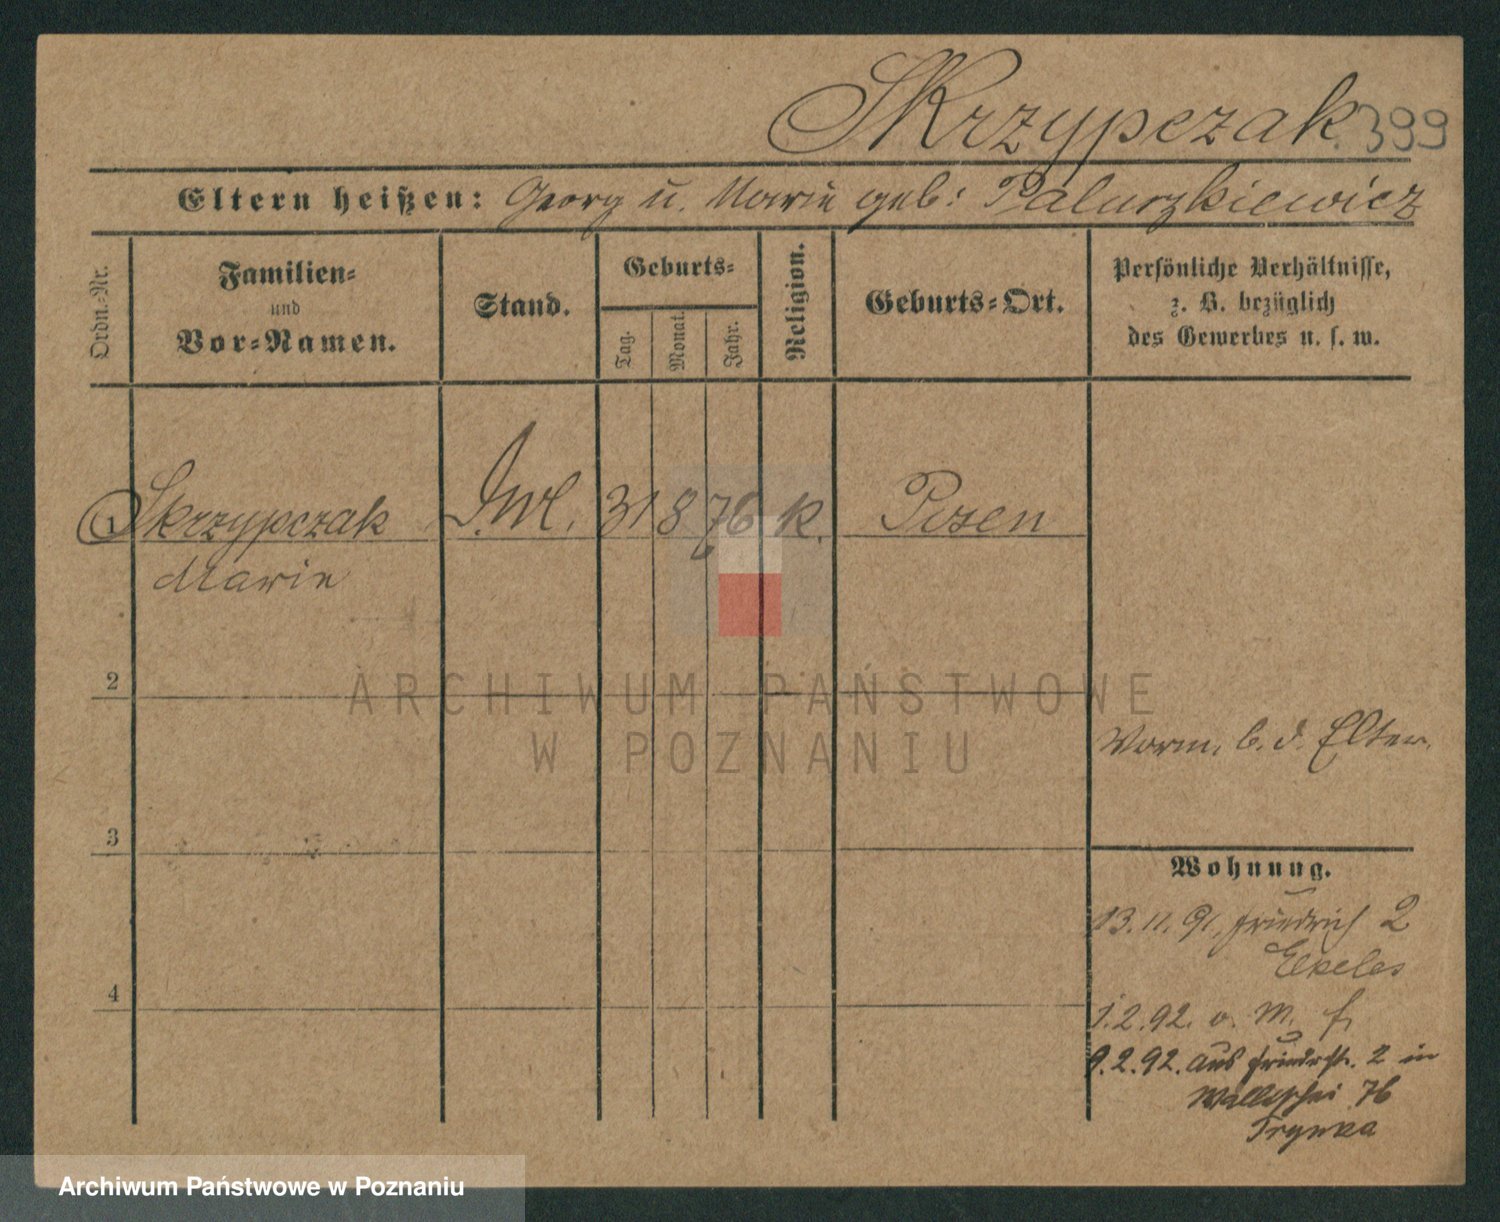 Skrzypczak 399
Eltern heißen: Georg u. Marie geb: Paluszkiewicz
Ordn.-Nr.
Familien-
und
Vor-Namen.
Stand.
Geburts-
Tag.
Monat.
Jahr.
Religion.
Geburts-Ort.
Persönliche Verhältnisse,
z. B. bezüglich
des Gewerbes u. s. w.
1 Skrzypczak 31 8 76 k. Posen
Marie
2
ARCHIWUM PAŃSTWOWE
W POZNANIU
Vorm. b. d. Eltern.
3
Wohnung.
13. 11. 91. Friedrich 2
Ekeles
4
1. 2. 92. o. M. f.
9. 2. 92. aus Friedrchstr. 2 in
Wallischei 76
Trynka
Archiwum Państwowe w Poznaniu